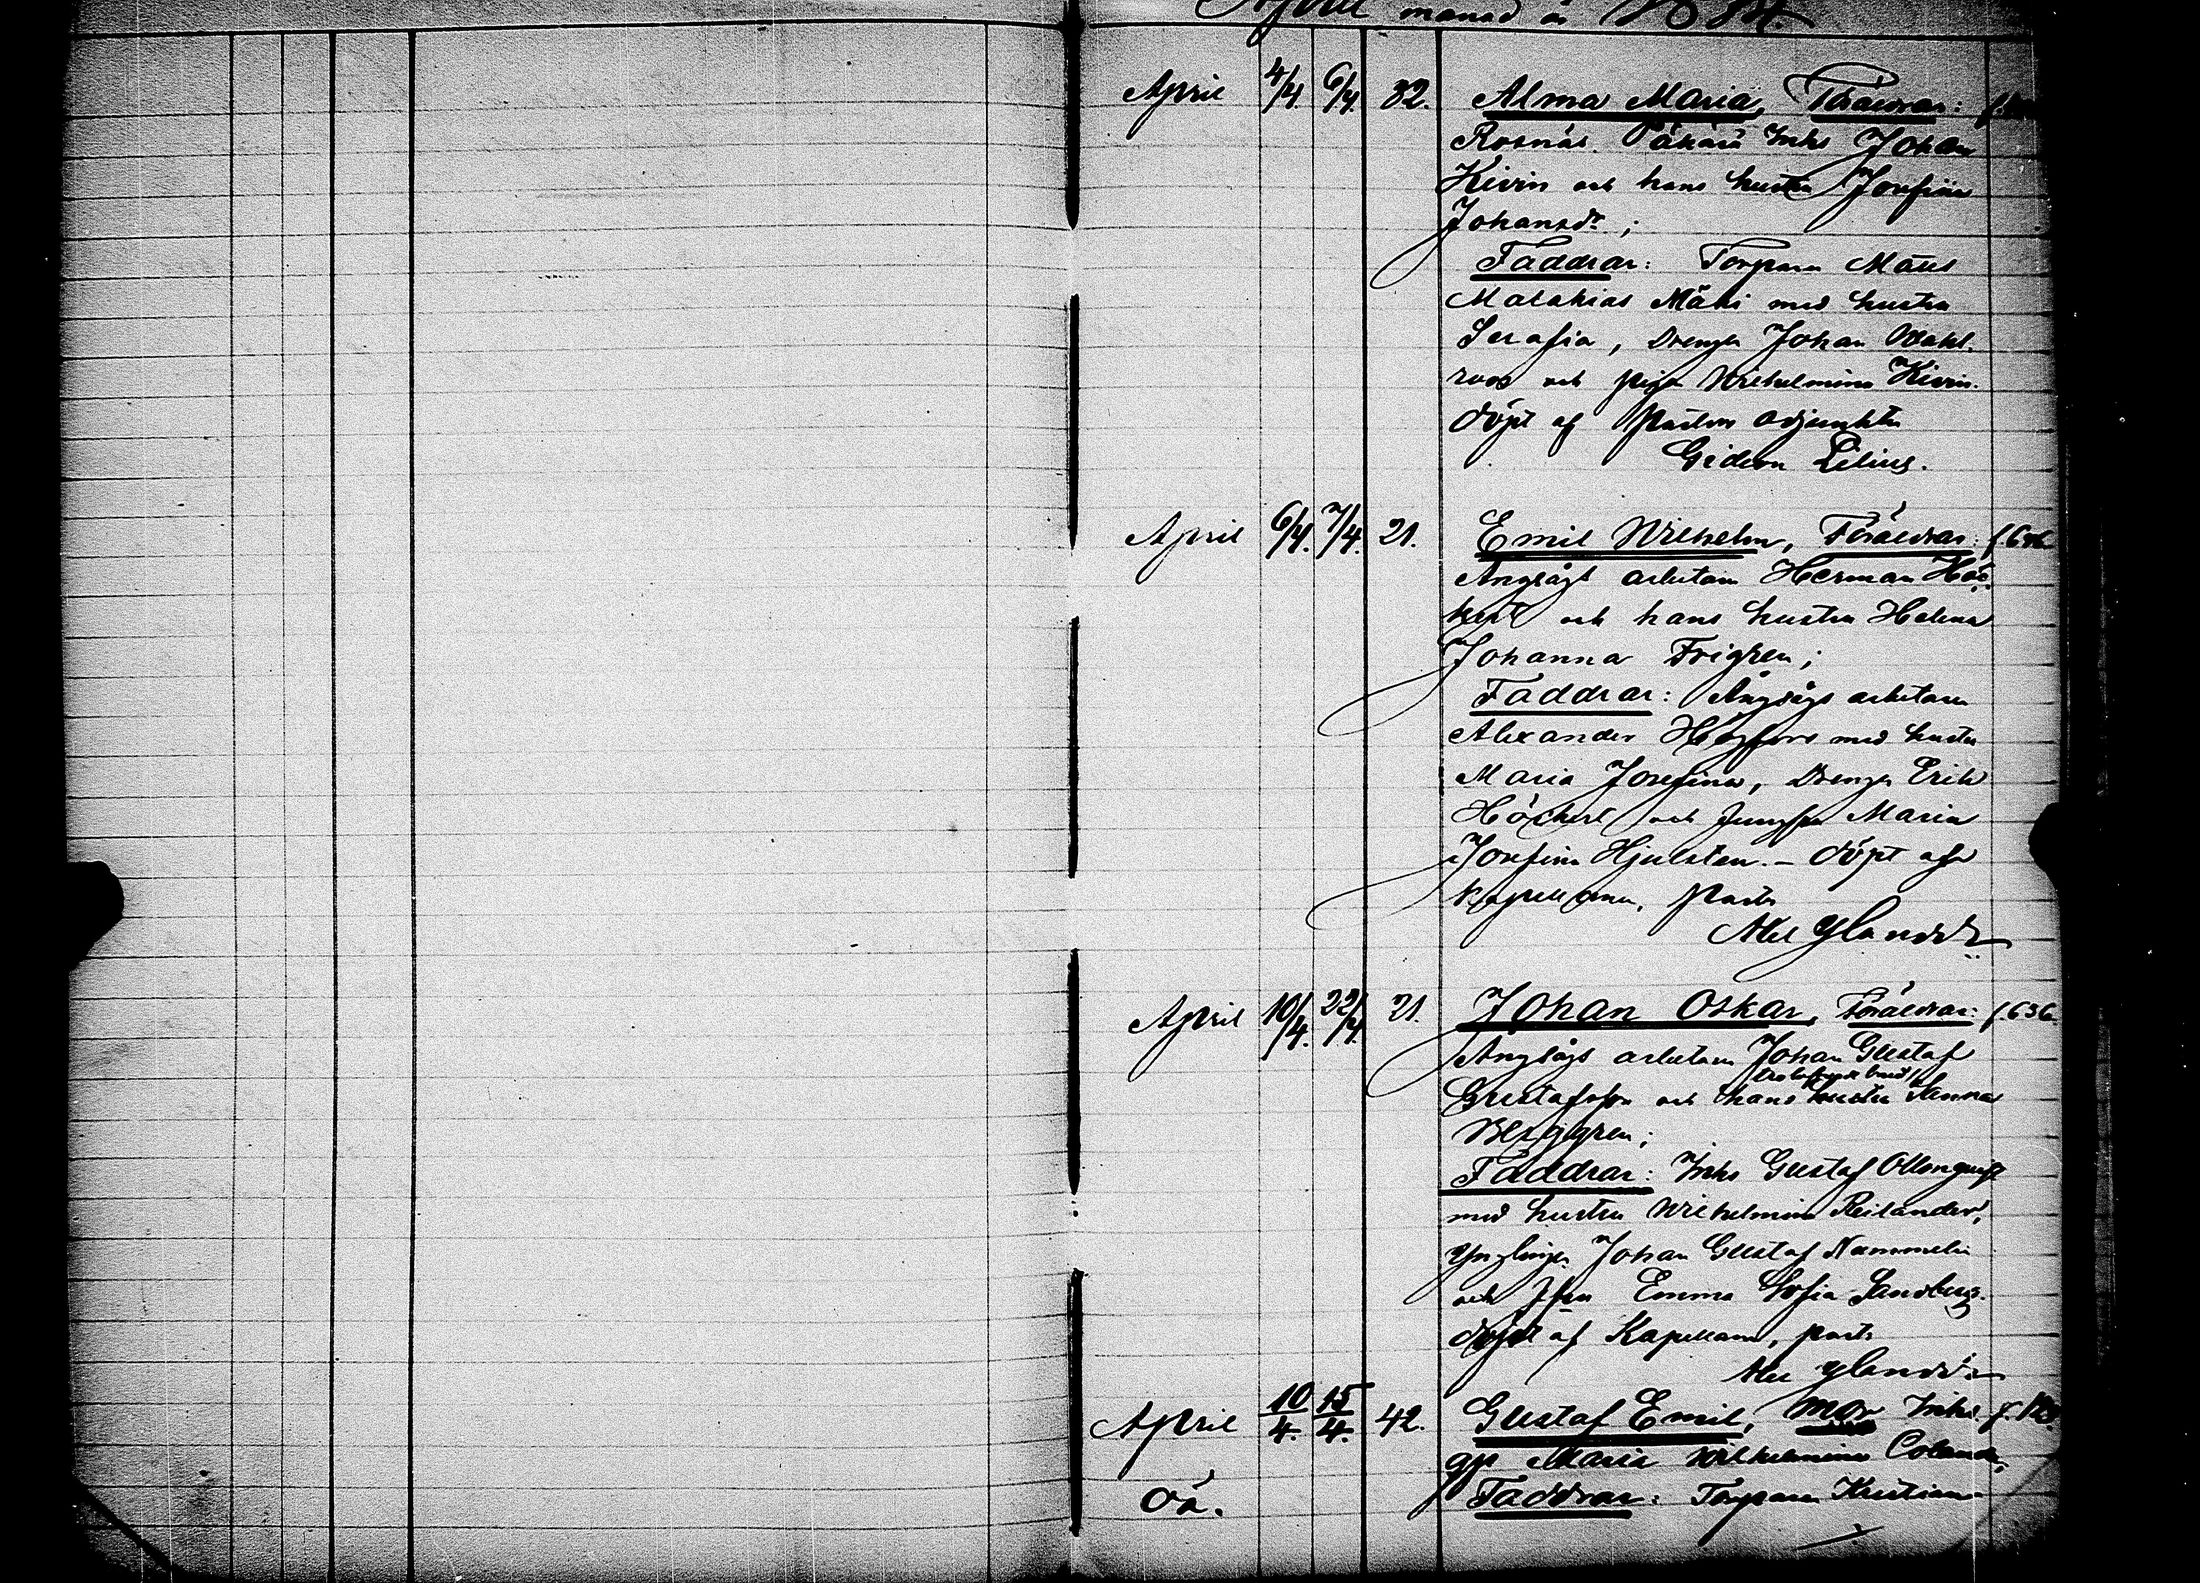 April månad år 1884.
April 4/4 6/4. 32. Alma Maria, Föräldrar:
Rosnäs. Inhs Johan
Kivin och hans hustru Josefina
Johansdr;
Faddrar: Torparn Mats
Malakias Mäki med hustru
Serafia, Drengen Johan Wahl-
roos och pigan Wilhelmina Kivin.
döpt af Pastors adjunkten
Gideon Lilius.
April 6/4. 7/4. 21. Emil Wilhelm, Föräldrar:
Ångsågs arbetarn Herman Höc-
kert och hans hustru Helena
Johanna Frigren;
Faddrar: Ångsågs arbetaren
Alexander Högfors med hustru
Maria Josefina, Drengen Erik
Höckert och Jungfru Maria
Josefina Hjulsten. - döpt af
Kapellanen, Past.
Ylander
April 10/4. 22/4. 21. Johan Oskar, Föräldrar: f. 636.
Ångsågs arbetarn Johan Gustaf
Gustafsson och hans hustru Sanna
Berggren;
Faddrar: Inhs Gustaf Ollonqvist
med hustru Wilhelmina Reilander,
Ynglingen Johan Gustaf Nummelin
och Jfrun Emma Sofia Sandberg.
döpt af Kapellanen, past.
Ylander
April 10/4. 15/4. 42. Gustaf Emil, mor Inhs.
qp Maria Wilhelmina
oä. Faddrar: Torparen Kristian